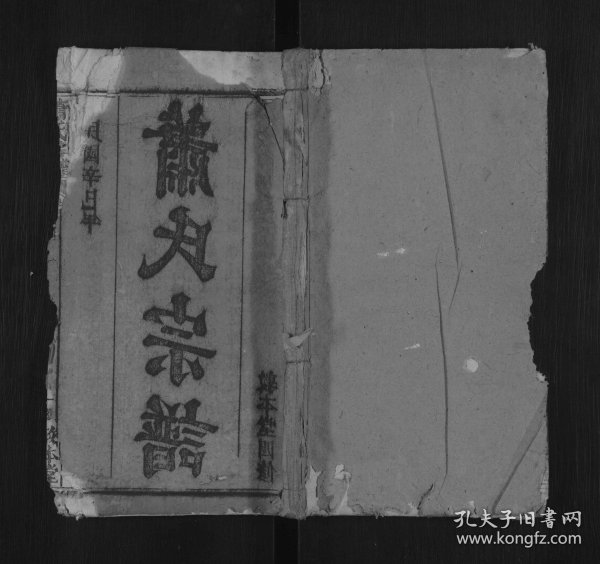 民國辛巳年
蕭氏宗譜
敦本堂四修
孔夫子旧書网
www.kongfz.com